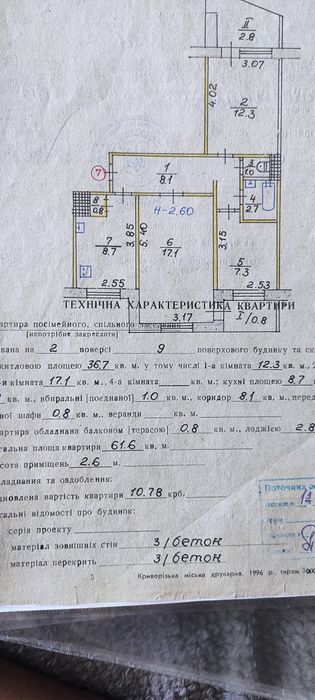 II
2.8
3.07
4.02
2
12.3
1
8.1
7
3
1.0
4
2.7
8
0.8
H-2.60
3.85
5.40
3.15
7
8.7
6
17.1
5
7.3
2.55
2.53
ТЕХНІЧНА ХАРАКТЕРИСТИКА КВАРТИРИ
3.17
I/0.8
вартира посімейного, спільного заселення
[непотрібне закреслити]
вана на 2 поверсі 9 поверхового будинку та ск
житловою площею 36.7 кв. м, у тому числі 1-а кімната 12.3 кв. м,
-я кімната 17.1 кв. м, 4-а кімната кв. м.; кухні площею 8.7
кв. м., вбиральні [поєднаної] 1.0 кв. м., коридор 8.1 кв. м., перед
ної шафи 0.8 кв. м., веранди кв. м.
вартира обладнана балконом [терасою] 0.8 кв. м., лоджією 2.8
гальна площа квартири 61.6 кв. м.
сота приміщень 2.6 м.
ладнання та оздоблення:
новлена вартість квартири 10.78 крб.
гальні відомості про будинок:
серія проекту
матеріал зовнішніх стін З/бетон
матеріал перекрить З/бетон
5 Криворізька міська друкарня, 1996 р., тираж 3000